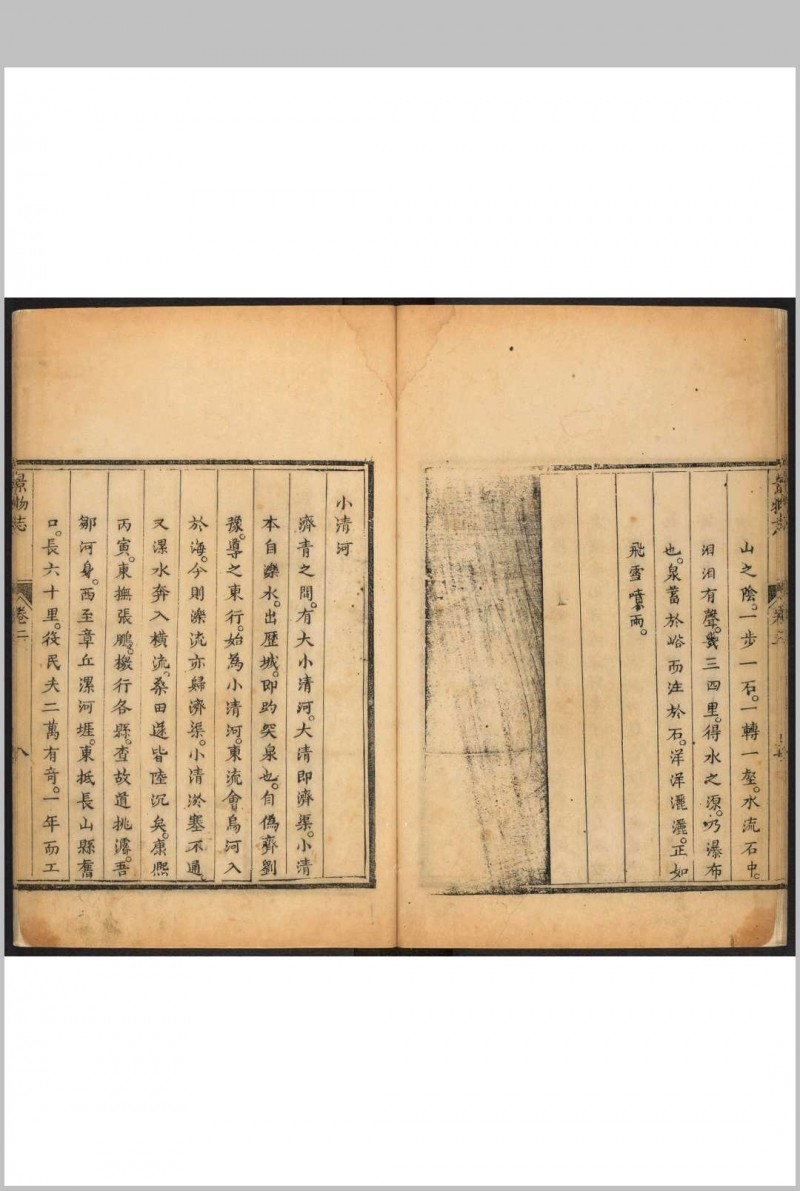 山之陰。一步一石。一轉一壑。水流石中。
汩汩有聲。幾三四里。得水之源。乃瀑布
也。泉蓄於峪而注於石。洋洋灑灑。正如
飛雪噴雨。
小清河
濟青之間。有大小清河。大清即濟渠。小清
本自濼水。出歷城。即趵突泉也。自偽齊劉
豫。導之東行。始為小清河。東流會烏河入
於海。今則濼流亦歸濟渠。小清淤塞不通。
又漯水奔入橫流。桑田遂皆陸沉矣。康熙
丙寅。東撫張鵬。檄行各縣。查故道挑濬。吾
鄒河身。西至章丘漯河堐。東抵長山縣舊
口。長六十里。役民夫二萬有奇。一年而工
景物志
卷二
八